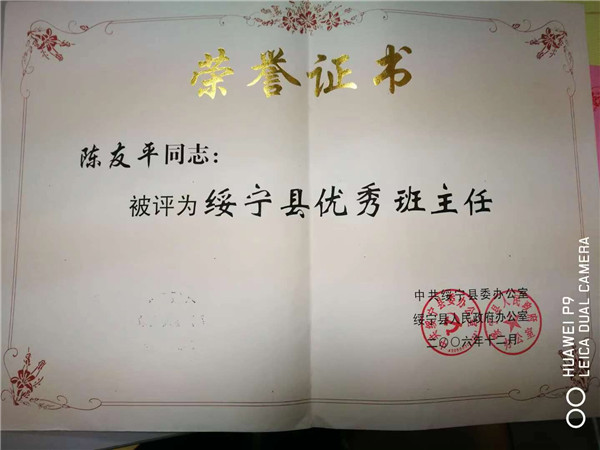 荣誉证书
陈友平同志：
被评为绥宁县优秀班主任
中共绥宁县委办公室
绥宁县人民政府办公室
二〇〇六年十二月
HUAWEI P9
LEICA DUAL CAMERA